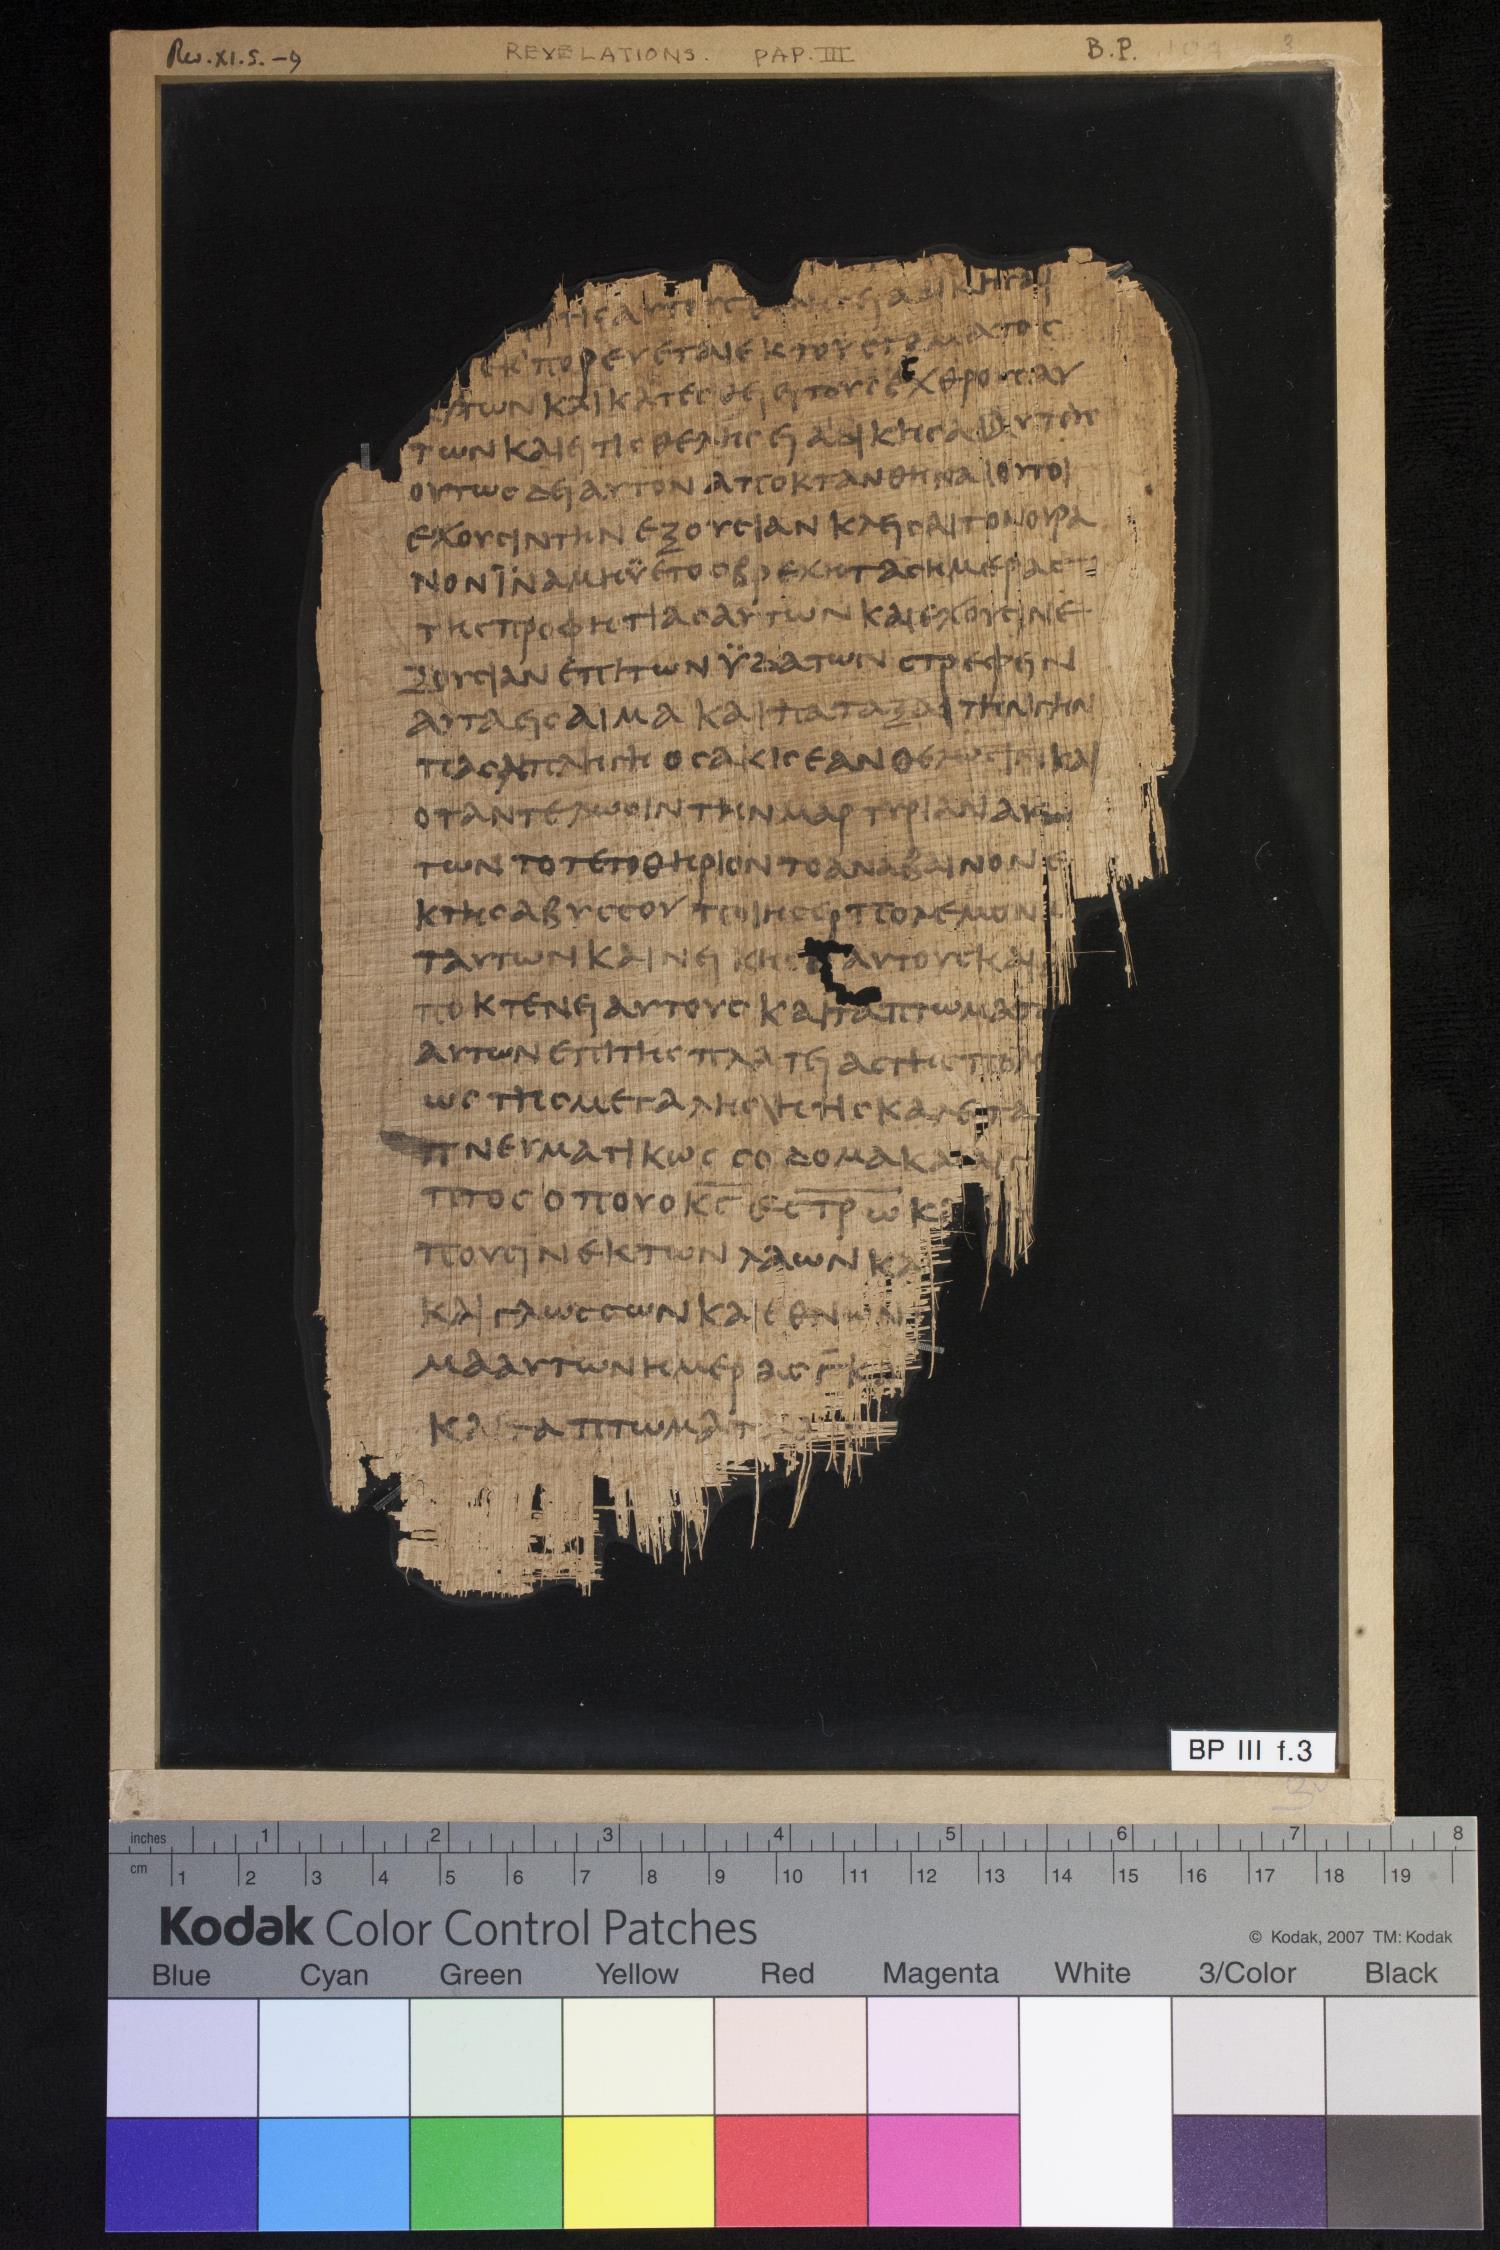 Rev. XI. 5. – 9
REVELATIONS. PAP. III
B.P.
3
εκ'πορευεται εκ του στοματος
αυτων και κατεσθιει τους εχθρους αυ
των και ει τις θελησει αδικησαι αυτους
ουτως δει αυτον αποκτανθηναι ουτοι
εχουσιν την εξουσιαν κλεισαι τον ουρα
νον ϊνα μη ϋετος βρεχη τας ημερας
της προφητιας αυτων και εχουσιν ε
ξουσιαν επι των ϋδατων στρεφειν
αυτα εις αιμα και παταξαι την γην
πληγη οσακις εαν θελωσιν και
οταν τελωσιν την μαρτυριαν αυ
των τοτε το θηριον το αναβαινον ε
κ της αβυσσου ποιησει πολεμον
τ αυτων και νεικησει αυτους και
ποκτενει αυτους και τα πτωματ
αυτων επι της πλατειας της πολ
ως της μεγαλης ητις καλειτα
πνευματικως σοδομα και
πτος οπου ο κ̅ς̅ ε̅σ̅τ̅ρ̅ω̅ κ
πουσιν εκ των λαων κα
και γλωσσων και εθνων
μα αυτων ημερας γ̅ κ
και τα πτωματα
BP III f.3
3v
inches 1 2 3 4 5 6 7 8
cm 1 2 3 4 5 6 7 8 9 10 11 12 13 14 15 16 17 18 19
Kodak Color Control Patches
© Kodak, 2007 TM: Kodak
Blue Cyan Green Yellow Red Magenta White 3/Color Black